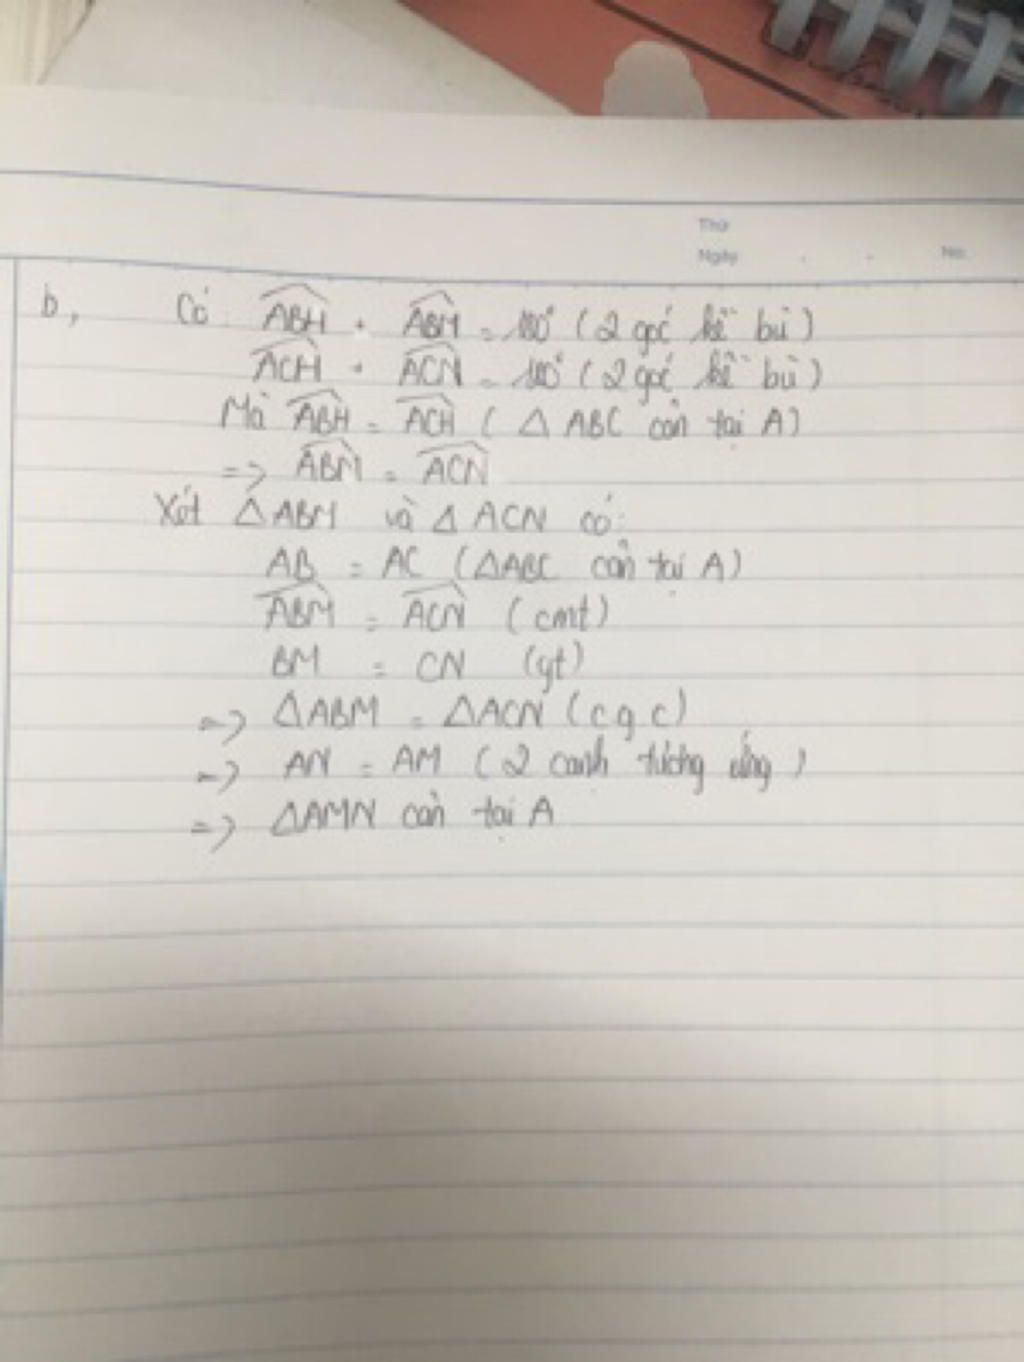 Thứ
Ngày . . No.
b, Có: \widehat{ABH} + \widehat{ABM} = 180° (2 góc kề bù)
\widehat{ACH} + \widehat{ACN} = 180° (2 góc kề bù)
Mà \widehat{ABH} = \widehat{ACH} (△ABC cân tại A)
=> \widehat{ABM} = \widehat{ACN}
Xét △ABM và △ACN có:
AB = AC (△ABC cân tại A)
\widehat{ABM} = \widehat{ACN} (cmt)
BM = CN (gt)
=> △ABM = △ACN (c g c)
=> AN = AM (2 cạnh tương ứng)
=> △AMN cân tại A